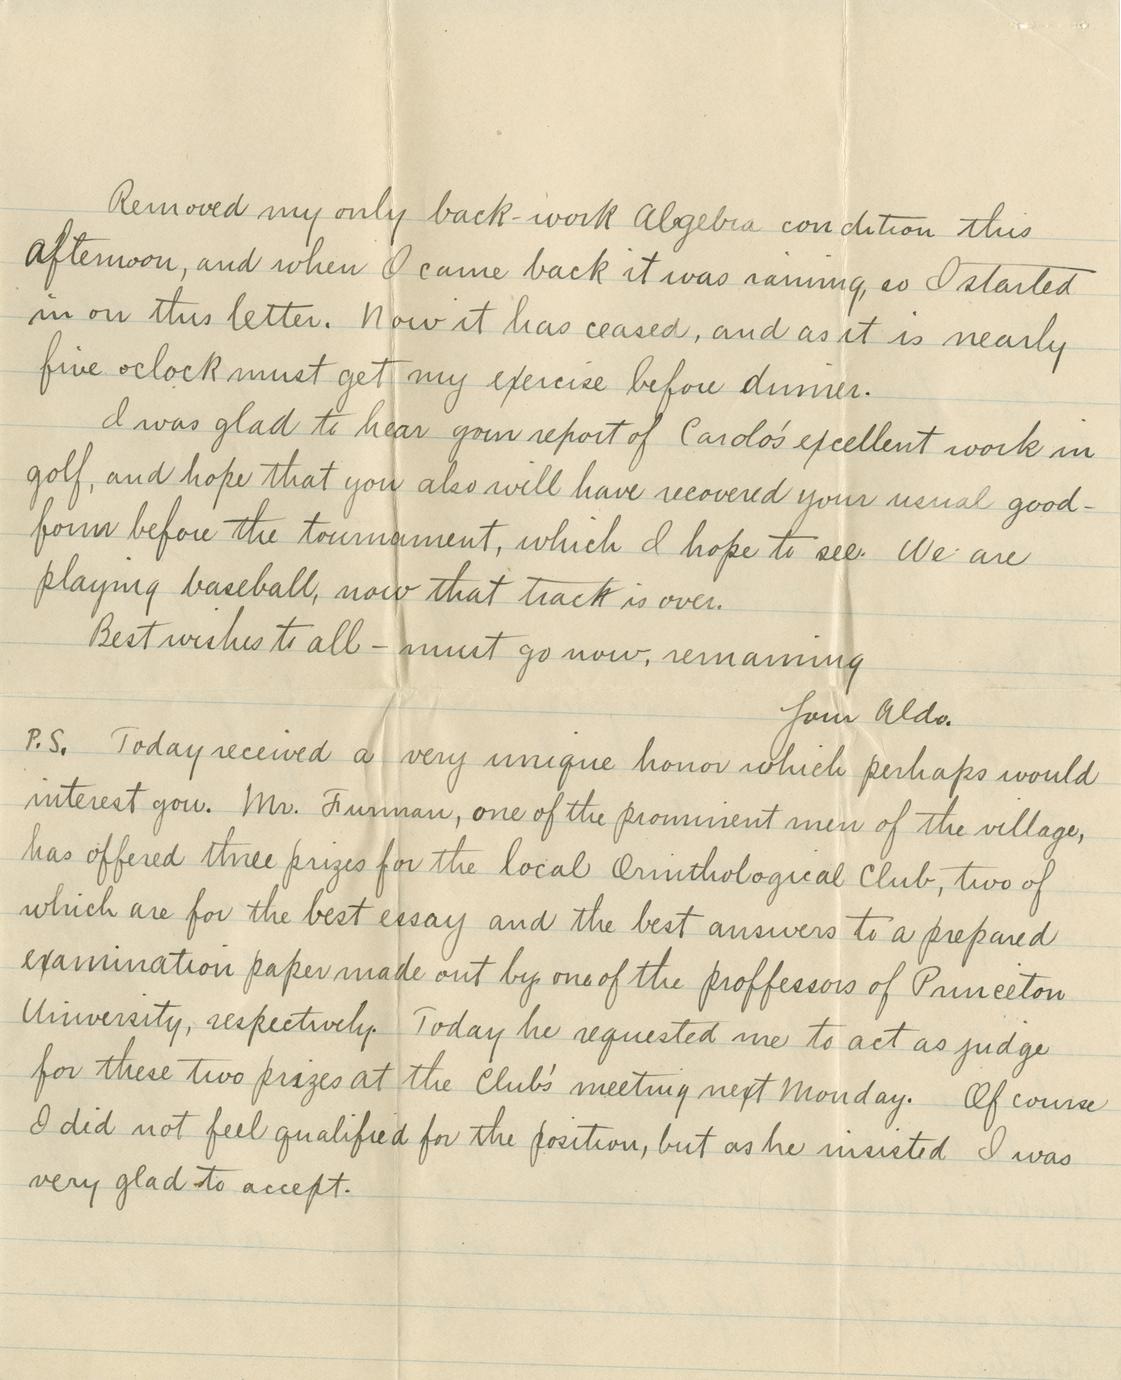 Removed my only back-work Algebra condition this
afternoon, and when I came back it was raining, so I started
in on this letter. Now it has ceased, and as it is nearly
five oclock must get my exercise before dinner.
I was glad to hear your report of Carolo's excellent work in
golf, and hope that you also will have recovered your usual good-
form before the tournament, which I hope to see. We are
playing baseball, now that track is over.
Best wishes to all – must go now, remaining
Your Aldo.
P.S. Today received a very unique honor which perhaps would
interest you. Mr. Furman, one of the prominent men of the village,
has offered three prizes for the local Ornithological Club, two of
which are for the best essay and the best answers to a prepared
examination paper made out by one of the proffessors of Princeton
University, respectively. Today he requested me to act as judge
for these two prizes at the Club's meeting next Monday. Of course
I did not feel qualified for the position, but as he insisted I was
very glad to accept.